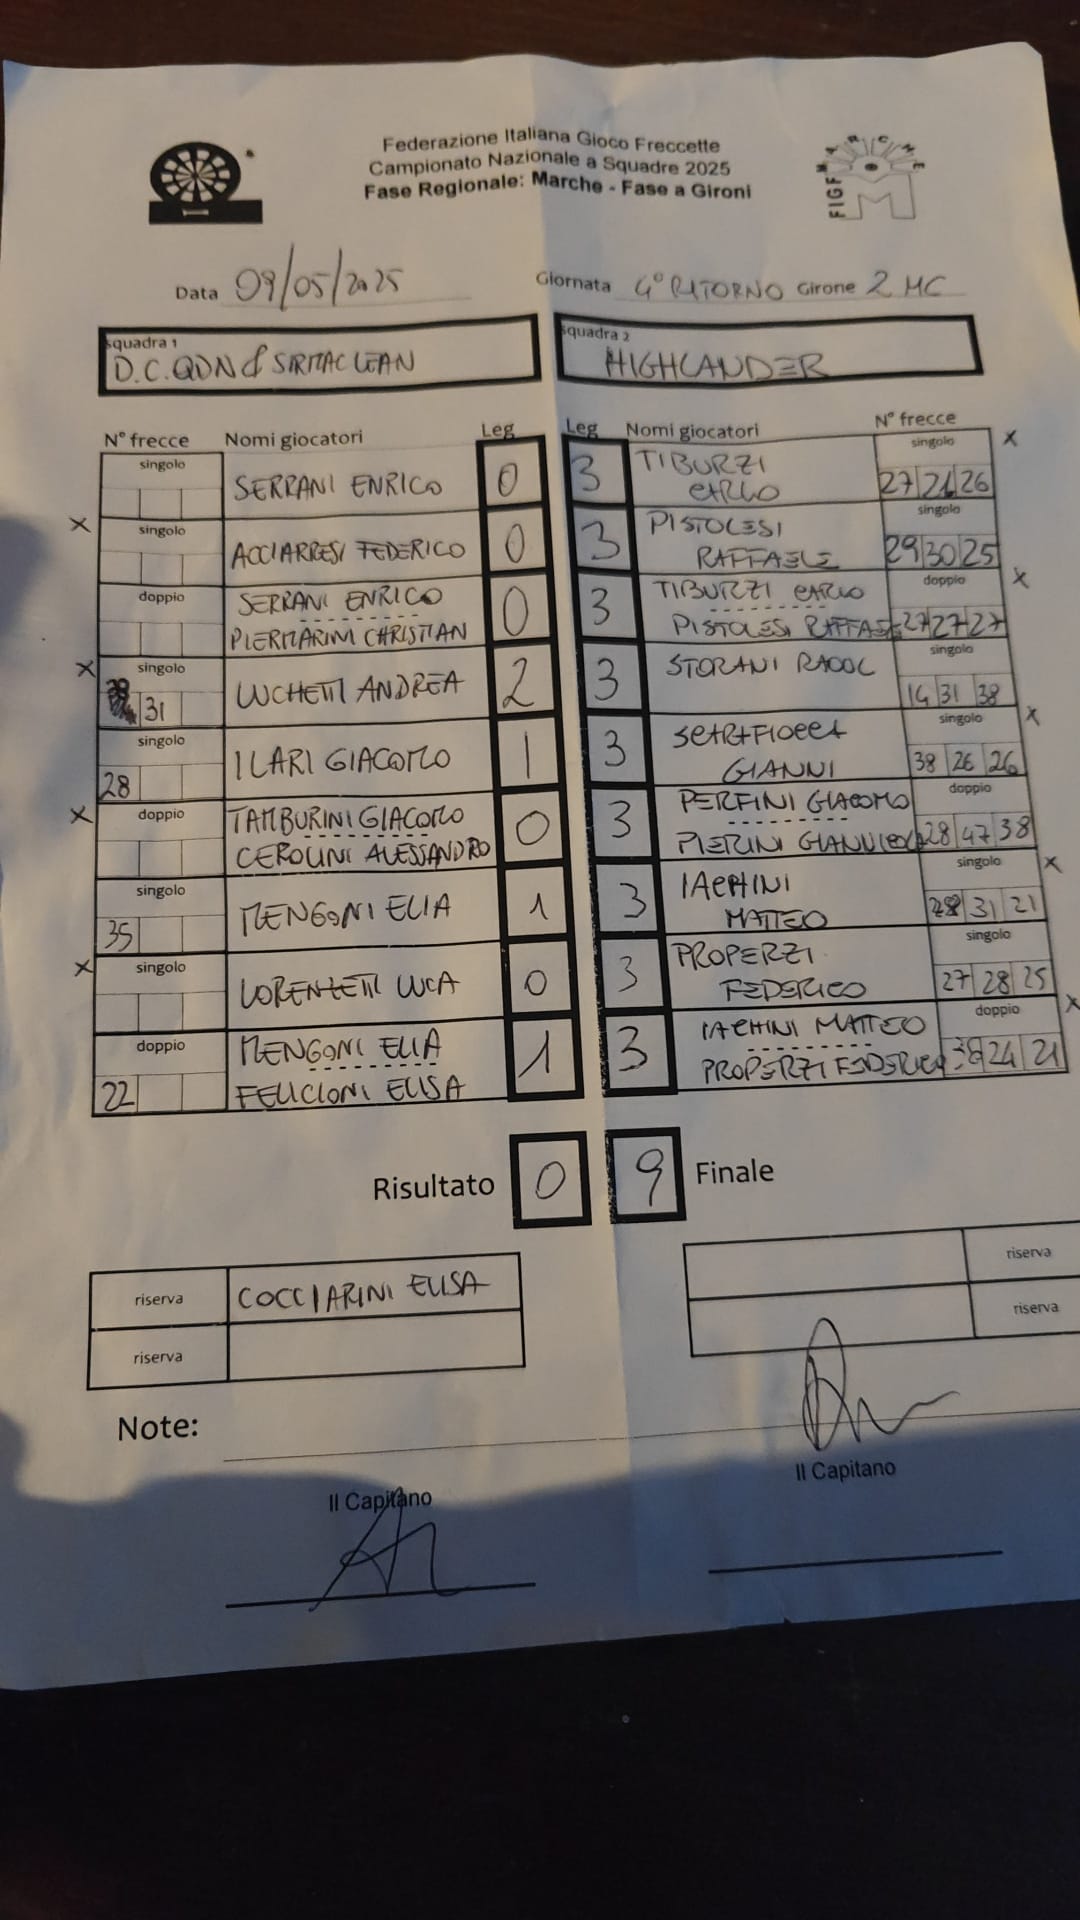 Federazione Italiana Gioco Freccette
Campionato Nazionale a Squadre 2025
Fase Regionale: Marche - Fase a Gironi
FIGF MARCHE
Data 09/05/2025 Giornata 4° RITORNO Girone 2 MC
squadra 1 squadra 2
D.C. QDN & SIRMACLEAN HIGHLANDER
N° frecce Nomi giocatori Leg Leg Nomi giocatori N° frecce
singolo SERRANI ENRICO 0 3 TIBURZI CARLO singolo 27 21 26 X
X singolo ACCIARRESI FEDERICO 0 3 PISTOLESI RAFFAELE singolo 29 30 25
doppio SERRANI ENRICO 0 3 TIBURZI CARLO doppio X
PIERMARINI CHRISTIAN PISTOLESI RAFFAE 27 27 27
X singolo 31 LUCHETTI ANDREA 2 3 STORANI RAOUL singolo 14 31 38
singolo 28 ILARI GIACOMO 1 3 SCARAFIOCCA GIANNI singolo 38 26 26 X
X doppio TAMBURINI GIACOMO 0 3 PERFINI GIACOMO doppio
CEROLINI ALESSANDRO PIERINI 28 47 38
singolo 35 MENGONI ELIA 1 3 IACHINI MATTEO singolo 28 31 21 X
X singolo LORENZETTI LUCA 0 3 PROPERZI FEDERICO singolo 27 28 25
doppio MENGONI ELIA 1 3 IACHINI MATTEO doppio X
22 FELICIONI ELISA PROPERZI FEDERICO 38 24 21
Risultato 0 9 Finale
riserva COCCIARINI ELISA riserva
riserva riserva
Note:
Il Capitano Il Capitano